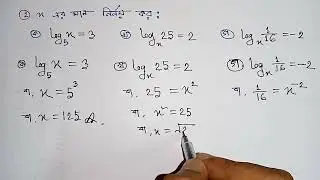 ② x এর মান নির্ণয় কর:
ⓐ log₅ x = 3 ⓑ logₓ 25 = 2 ⓒ logₓ 1/16 = -2
ⓐ log₅ x = 3 ⓑ logₓ 25 = 2 ⓒ logₓ 1/16 = -2
বা, x = 5³ বা, 25 = x² বা, 1/16 = x⁻²
বা, x = 125 x² = 25
বা, x = √2